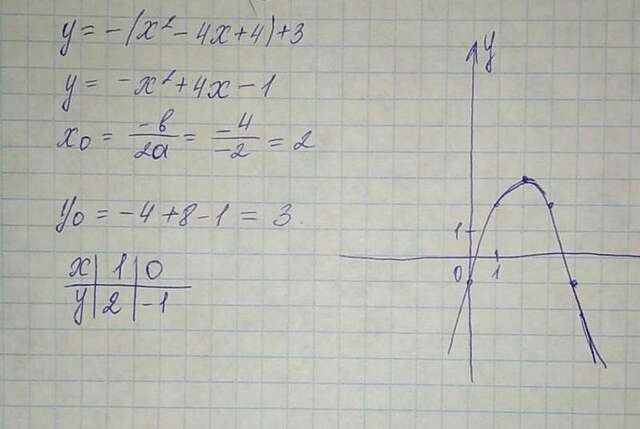 y = -(x² - 4x + 4) + 3
y = -x² + 4x - 1
x₀ = -b/2a = -4/-2 = 2
y₀ = -4 + 8 - 1 = 3.
x | 1 | 0
y | 2 | -1
y
1
0 1